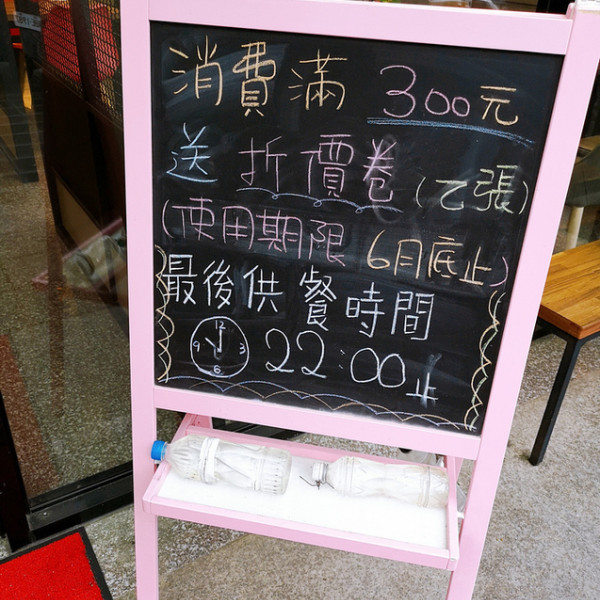 消費滿 300元
送折價卷(乙張)
(使用期限 6月底止)
最後供餐時間
12
9 3
6
22:00止